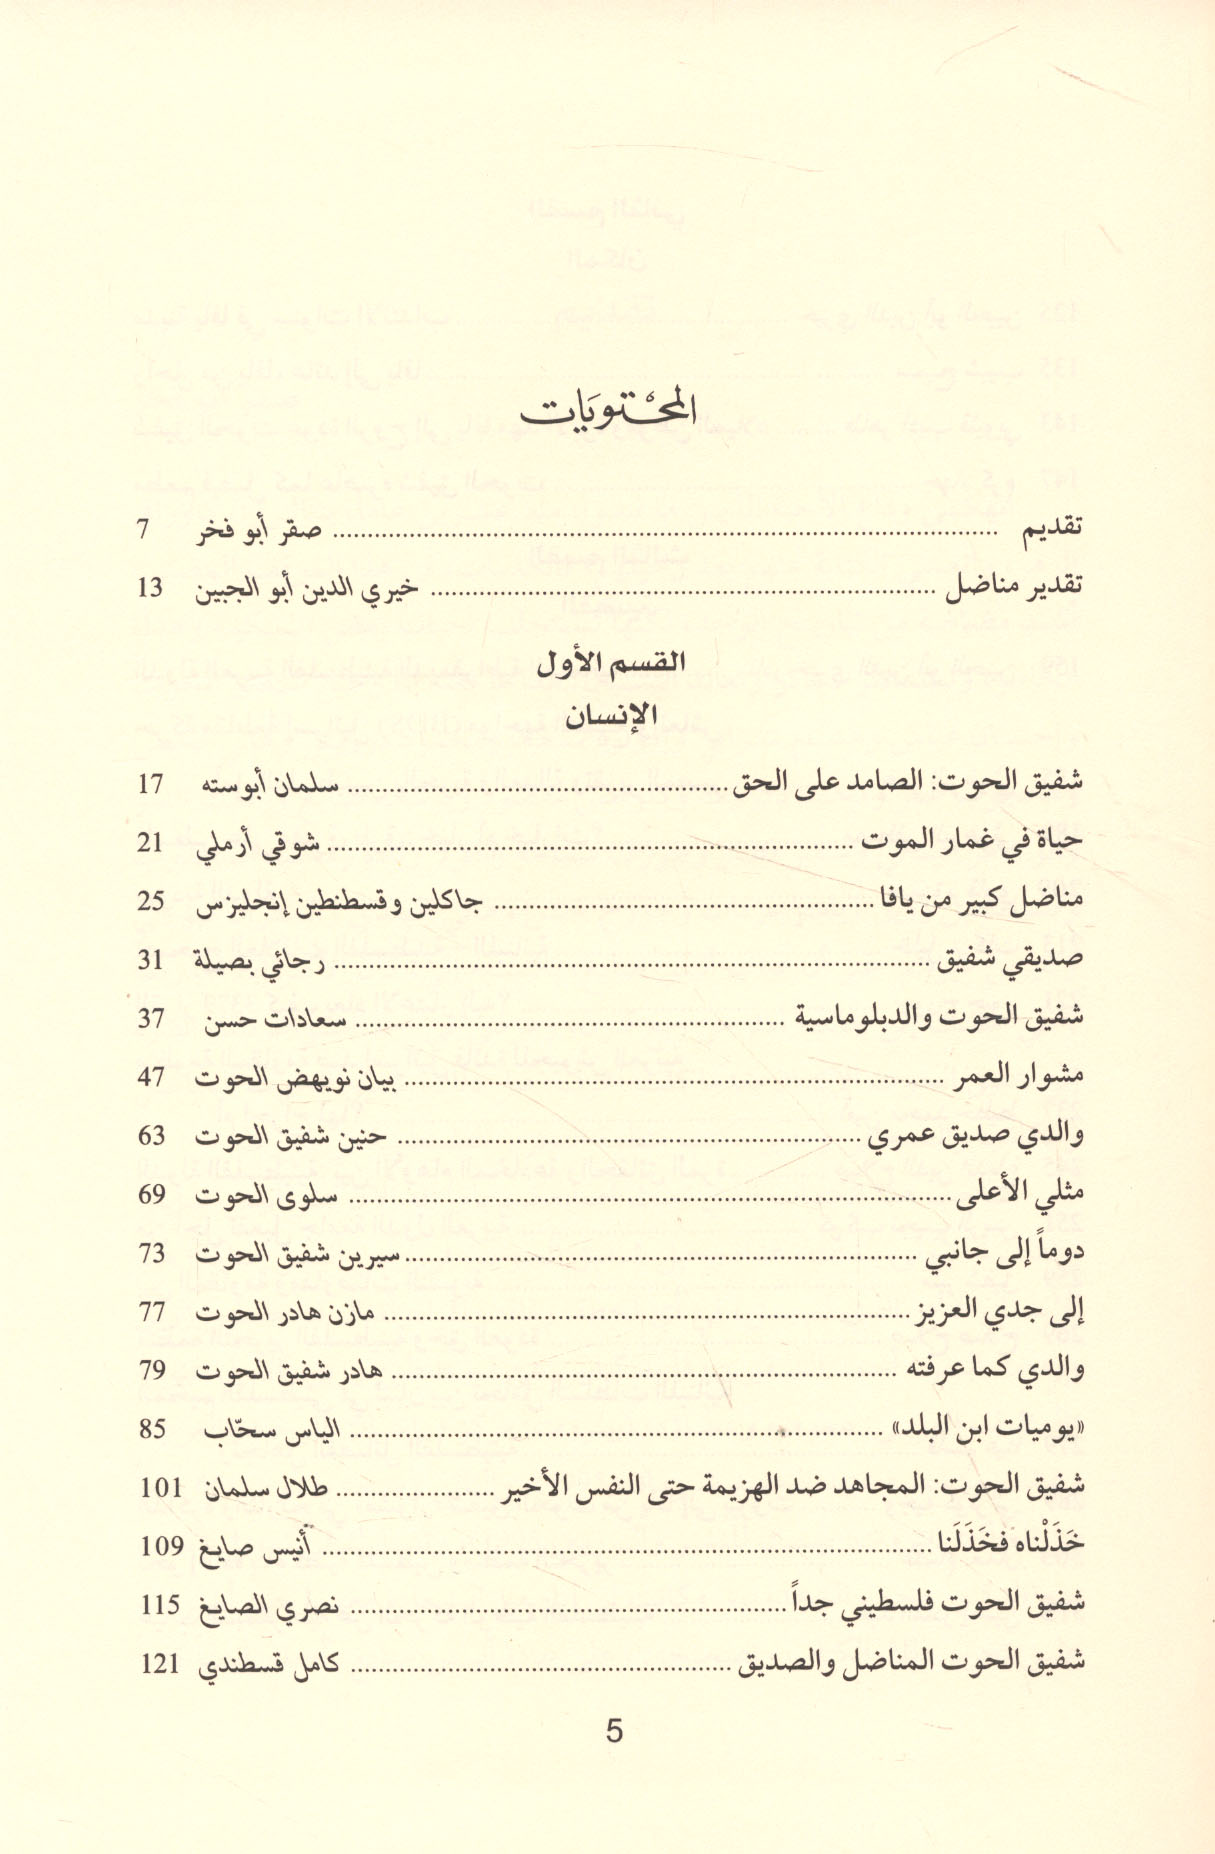 المحْتويَات
تقديم ........ صقر أبو فخر 7
تقدير مناضل ........ خيري الدين أبو الجبين 13
القسم الأول
الإنسان
شفيق الحوت: الصامد على الحق ........ سلمان أبوسته 17
حياة في غمار الموت ........ شوقي أرملي 21
مناضل كبير من يافا ........ جاكلين وقسطنطين إنجليزس 25
صديقي شفيق ........ رجائي بصيلة 31
شفيق الحوت والدبلوماسية ........ سعادات حسن 37
مشوار العمر ........ بيان نويهض الحوت 47
والدي صديق عمري ........ حنين شفيق الحوت 63
مثلي الأعلى ........ سلوى الحوت 69
دوماً إلى جانبي ........ سيرين شفيق الحوت 73
إلى جدي العزيز ........ مازن هادر الحوت 77
والدي كما عرفته ........ هادر شفيق الحوت 79
«يوميات ابن البلد» ........ الياس سحّاب 85
شفيق الحوت: المجاهد ضد الهزيمة حتى النفس الأخير ........ طلال سلمان 101
خَذَلْناه فخَذَلَنا ........ أنيس صايغ 109
شفيق الحوت فلسطيني جداً ........ نصري الصايغ 115
شفيق الحوت المناضل والصديق ........ كامل قسطندي 121
5